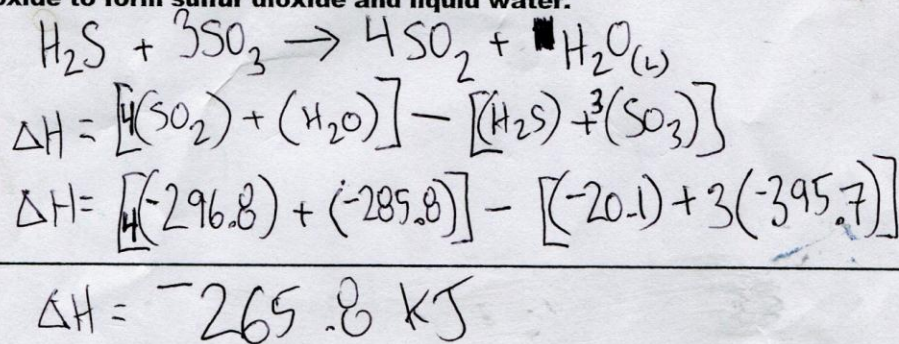 oxide to form sulfur dioxide and liquid water.
H₂S + 3SO₃ → 4SO₂ + H₂O(L)
ΔH = [4(SO₂) + (H₂O)] - [(H₂S) + 3(SO₃)]
ΔH = [4(-296.8) + (-285.8)] - [(-20.1) + 3(-395.7)]
ΔH = -265.8 KJ